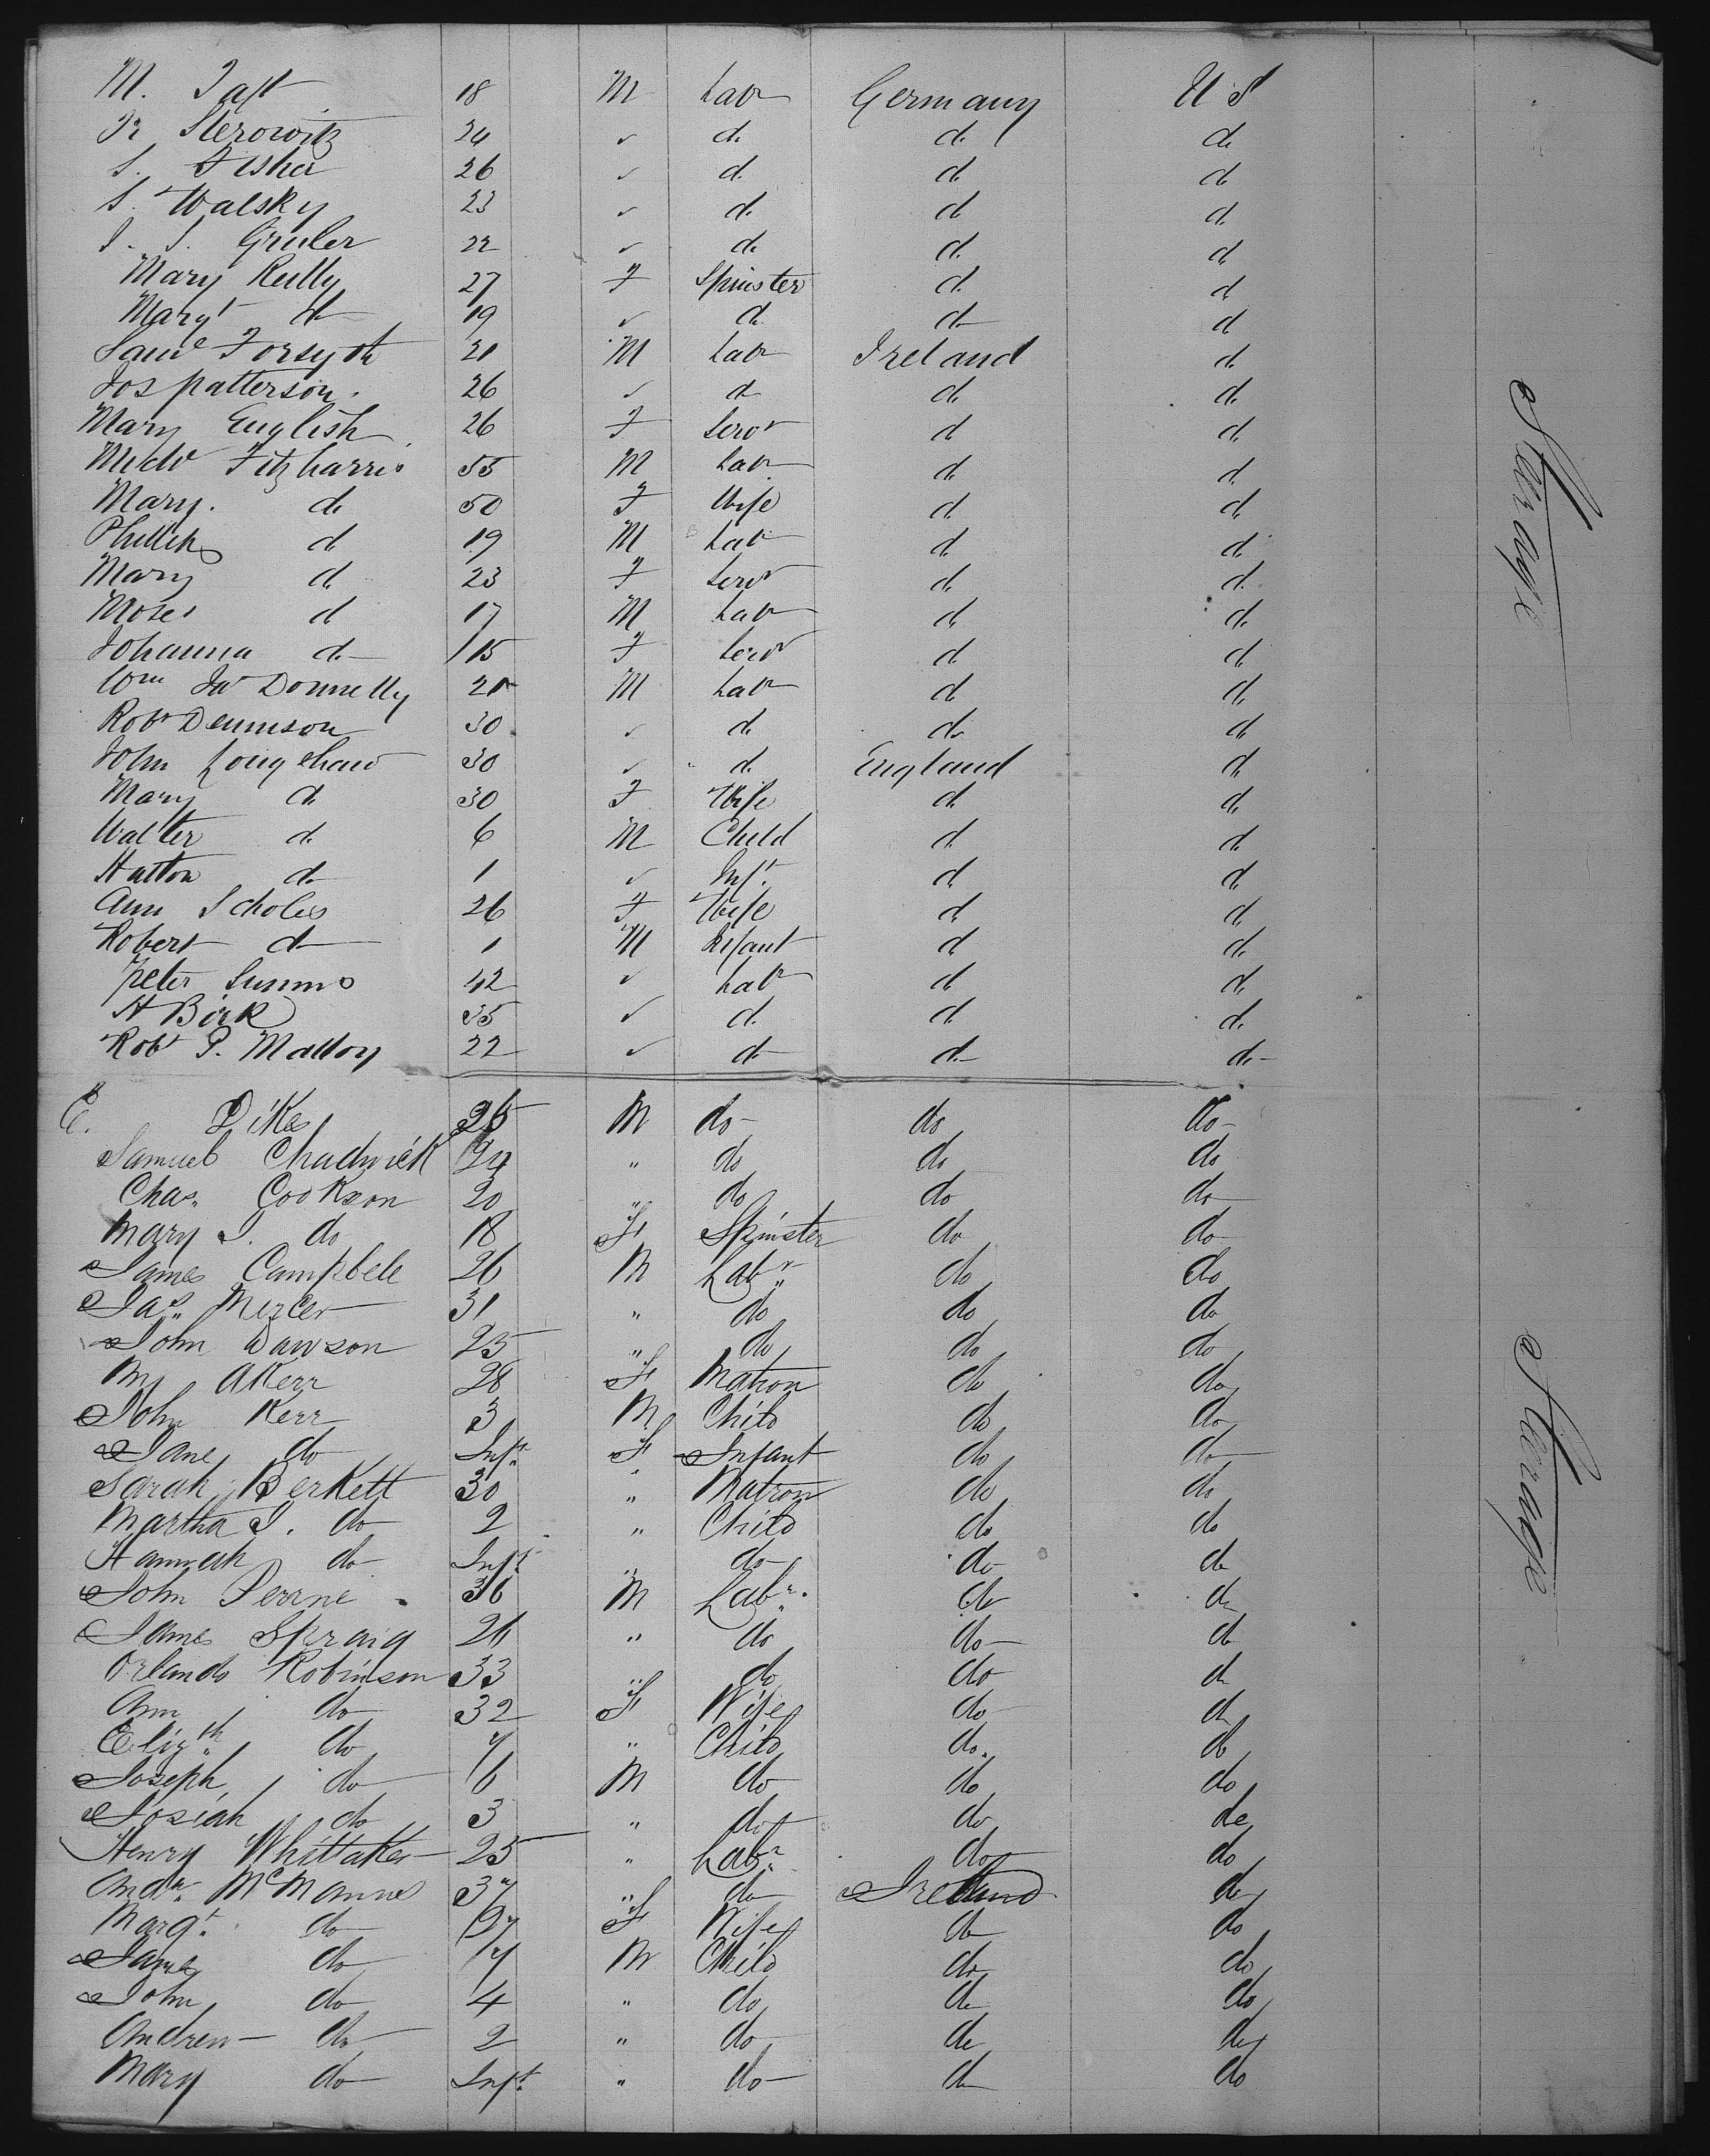 M. Taft 18 M Labr Germany U S
Sterowitz 24 " do do do
S. Fisher 26 " do do do
S. Walsky 23 " do do do
J. S. Gruler 22 " do do do
Mary Reilly 27 F Spinster do do
Margt do 19 " do do do
Saml Forsyth 21 M Labr Ireland do
Jos Patterson 26 " do do do
Mary English 26 F Servt do do
Fitzharris 55 M Labr do do
Mary do 50 F Wife do do
Phillip do 19 M Labr do do
Mary do 23 F Servt do do
Moses do 17 M Labr do do
Johanna do 15 F Servt do do
Wm Donnelly 21 M Labr do do
Robt Dennison 30 " do do do
John Longshaw 30 " do England do
Mary do 30 F Wife do do
Walter do 6 M Child do do
Hatton do 1 " Inft. do do
Ann Scholes 26 F Wife do do
Robert do 1 M Infant do do
Peter 42 " Labr do do
H Birk 35 " do do do
Robt P. Malloy 22 " do do do
E. Dikes 25 M do do do
Samuel Chadwick 24 " do do do
Chas. Cookson 20 " do do do
Mary J. do 18 F Spinster do do
James Campbell 26 M Labr do do
Jas. Mercer 31 " do do do
John Dawson 25 " do do do
M AKerr 28 F Matron do do
John Kerr 3 M Child do do
Jane do Inft F Infant do do
Sarah Berkett 30 " Matron do do
Martha J. do 2 " Child do do
Hannah do Inft " do do do
John Perrne 36 M Labr. do do
James Spraig 26 " do do do
Orlando Robinson 33 " do do do
Ann do 32 F Wife do do
Elizth do 7 " Child do do
Joseph do 6 M do do do
Josiah do 3 " do do do
Henry Whittaker 25 " Labr do do
Andw. McMannes 37 " do Ireland do
Margt. do 27 F Wife do do
James do 7 M Child do do
John do 4 " do do do
Andrew do 2 " do do do
Mary do Inft " do do do
Sterage
Sterage